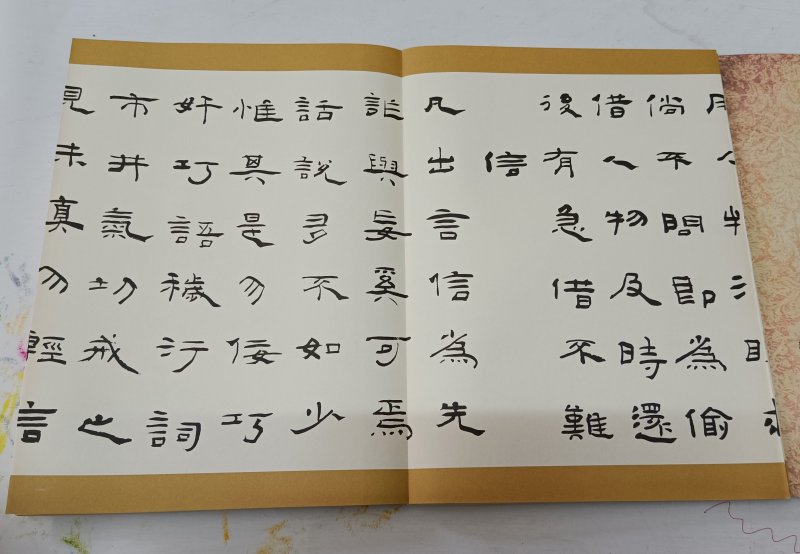 倘不問即為偷
借人物及時還
後有急借不難
信
凡出言信為先
詐與妄奚可焉
話說多不如少
惟其是勿佞巧
奸巧語穢汙詞
市井氣切戒之
見未真勿輕言